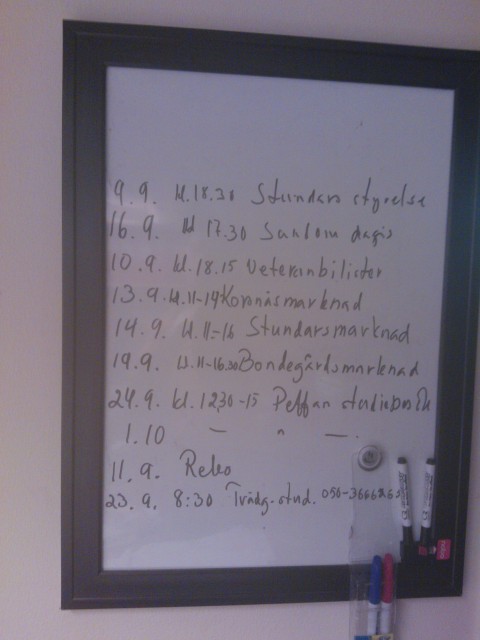 9.9. kl.18.30 Stundars styrelse
16.9. kl 17.30 dagis
10.9. kl.18.15 Veteranbilister
13.9. kl.11-14 Korsnäsmarknad
14.9. kl.11-16 Stundarsmarknad
19.9. kl.11-16.30 Bondegårdsmarknad
24.9. kl.12.30-15 Peffan
1.10 — " —.
11.9. Reko
23.9. 8:30 Trädg.stud.